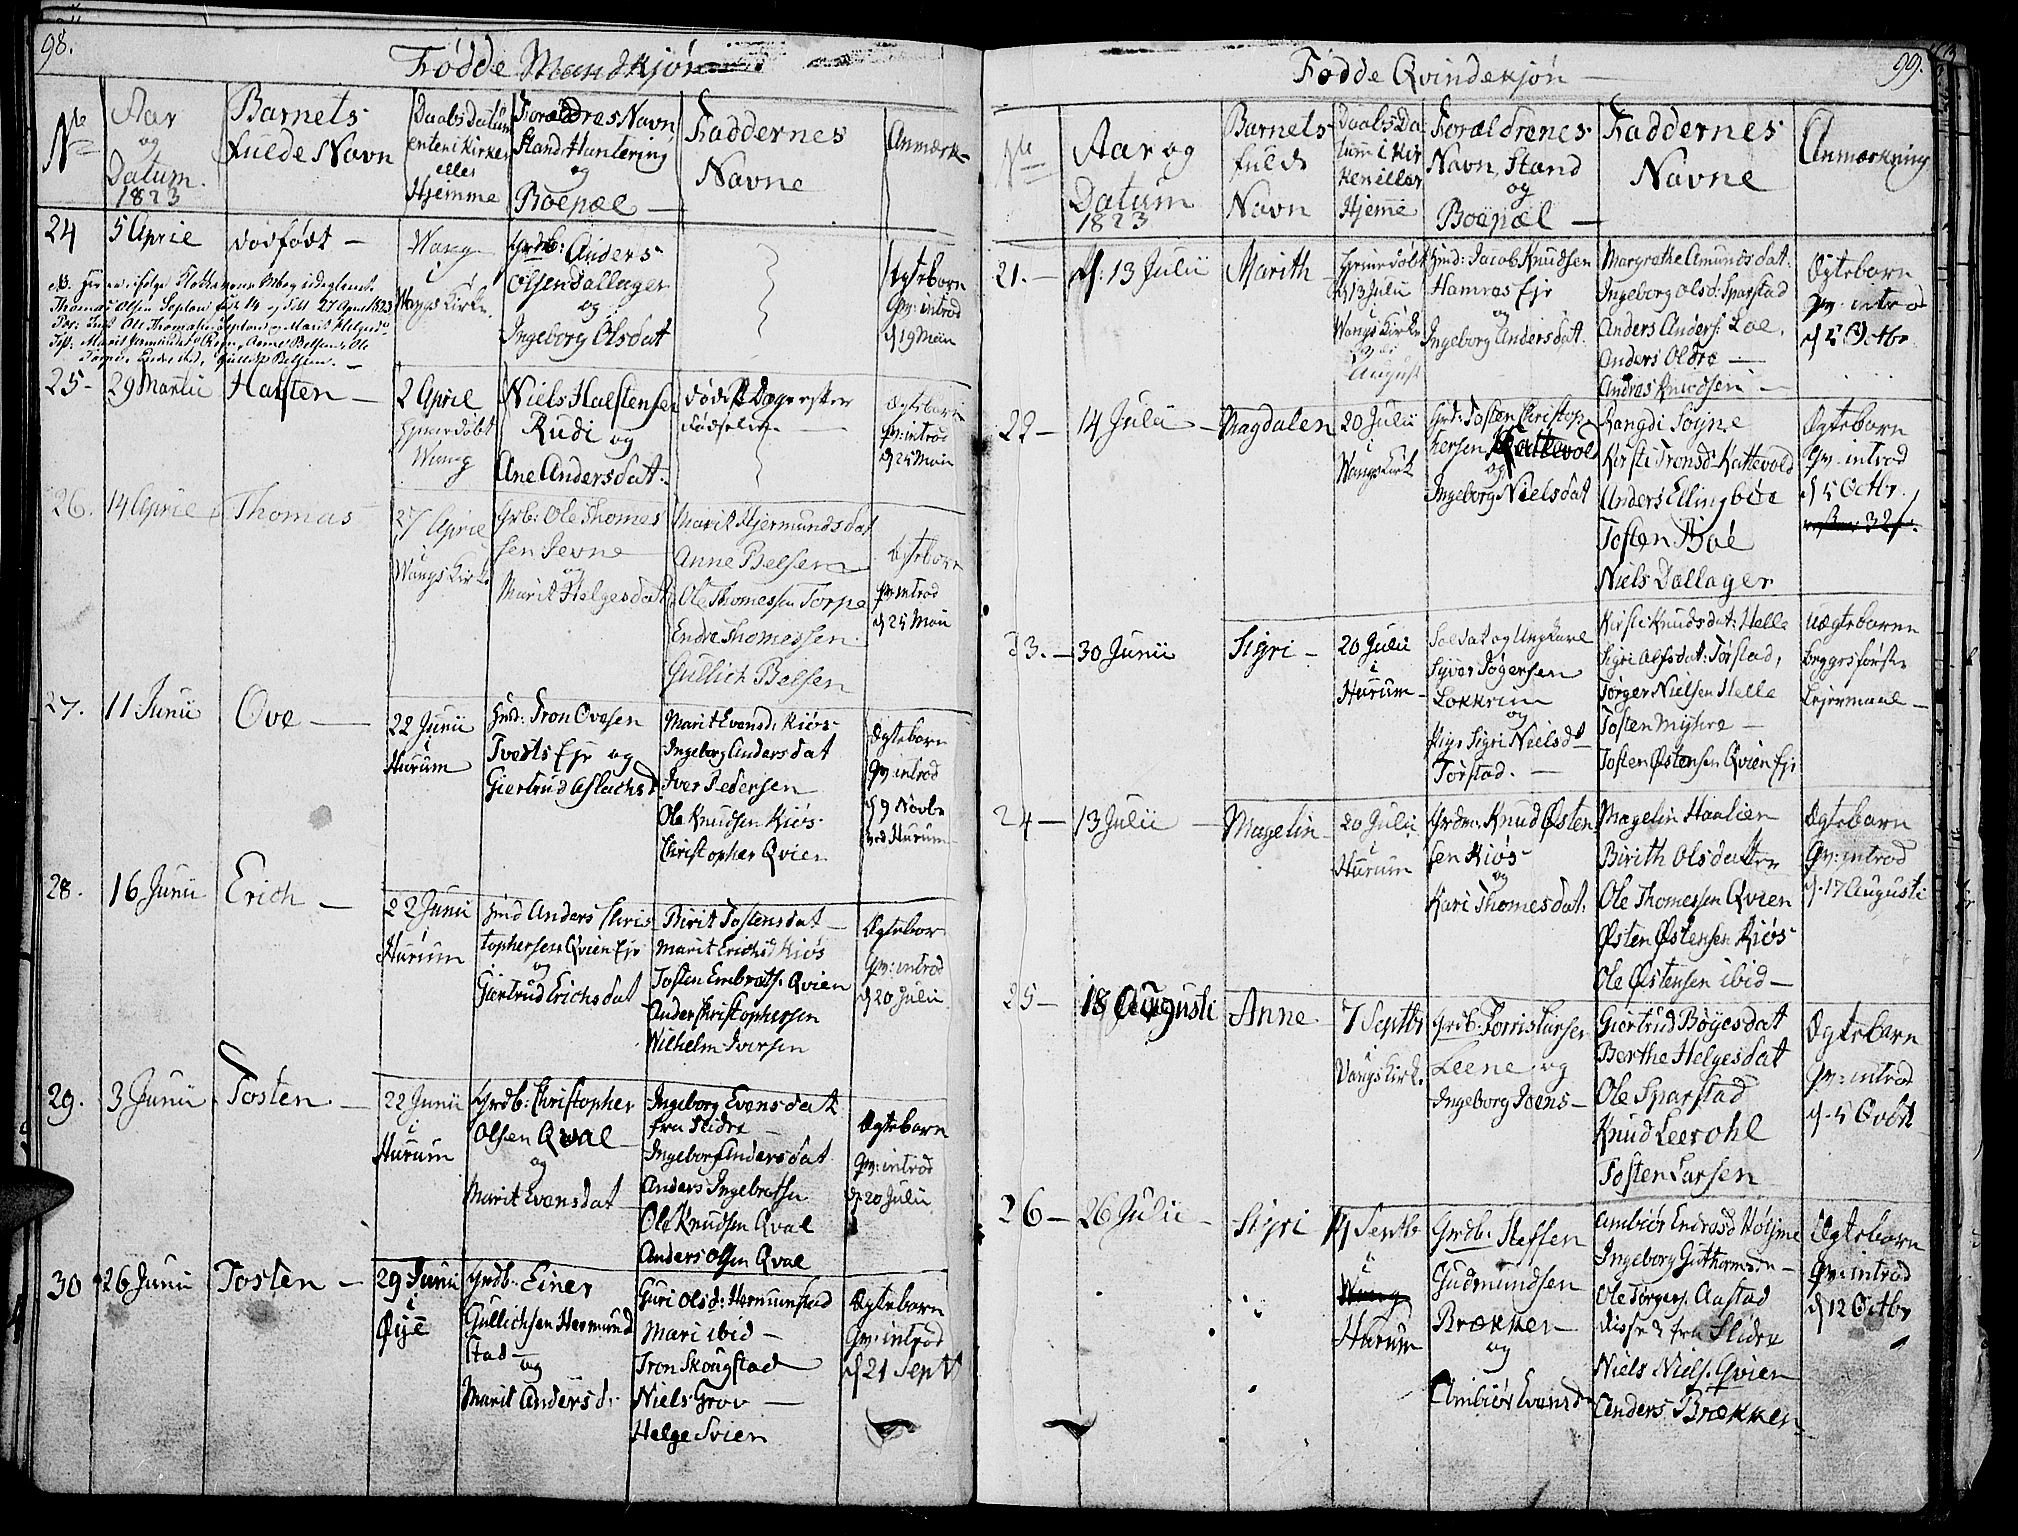 98.
Fødde Mandkjøn
No
Aar
og
Datum.
1823
Barnets
fulde Navn
Daabs Datum
enten i Kirken
eller
Hjemme
Forældres Navn
Stand Hantering
og
Boepæl —
Faddernes
Navne
Anmærk-
24
5 April
dødfødt —
Wang
i
Wangs Kirke.
Grdb: Anders
Olsen Dallager
og
Ingeborg Olsdat
Ægtebarn
Qv: introd
d 19 Maii
Thomas Olsen
25 -
29 Martii
Halsten —
2 April
Hjemedøbt
Wang
Niels Halstensen
Rudi og
Ane Andersdat.
døde 8 Dage efter
fødselen —
Ægtebarn
Qv: introd
d 25 Maii
26.
14 April
Thomas
27 April
i
Wangs Kirke
Grb: Ole Thomes
sen Jevne
og
Marit Helgesdat
Marit Hjermundsdat
Anne Belsen
Ole Thomessen Torpe
Endre Thomessen.
Gullich Belsen
Ægtebarn
Qv introd
d 25 Maii
27.
11 Junii
Ove —
22 Junii
i
Hurum
Hmd: Tron Ovesen
Tvedts Ejr og
Giertrud Aslachsd
Marit Evensd: Kiøs
Ingeborg Andersdat
Iver Pedersen
Ole Knudsen Kiøs
Christopher Qvien
Ægtebarn
Qv: introd
d 9 Novbr
ved Hurum
28.
16 Junii
Erich —
22 Junii
i
Hurum
Hmd Anders Chris
tophersen Qvien Ejr
og
Giertrud Erichsdat
Birit Tostensdat —
Marit Erichsd Kiøs
Tosten Embrets. Qvien
Ander Christophersen
Wilhelm Iversen
Ægtebar
Qv: introd
d 20 Julii
29.
3 Junii
Tosten —
22 Junii
i
Hurum
Grdb: Christopher
Olsen Qval
og
Marit Evensdat —
Ingeborg Evensdat
fra Slidre —
Ingebor Andersdat
Anders Ingebretsen
Ole Knudsen Qval
Anders Olsen Qval
Ægtebarn
Qv: introd
d 20 Julii
30
26 Junii
Tosten —
29 Junii
i
Øije
Grdb: Einer
Gullichsen Hermund
stad —
og
Marit Andersd:
Guri Olsd: Hermunstad
Mari ibid —
Tron Skougstad
Niels Grov —
Helge Svien
Ægtebarn
Qv: introd
d 21 Sept
99.
Fødde Qvindekjøn —
No
Aar og
Datum
1823
Barnets
fulde
Navn
Daabs Da
tum i Kir
ken eller
Hjeme
Forældrenes
Navn, Stand
og
Boepæl —
Faddernes
Navne
Anmærkning
21. —
d: 13 Julii
Marith —
Hjemedøbt
d 13 Julii
Wangs Kirke
August
Hmd: Jacob Knudsen
Hamras Ejr
og
Ingeborg Andersdat.
Margrethe Amundsdat.
Ingeborg Olsd: Sparstad
Anders Anders: Loe.
Anders Oldre —
Andras Knudsen —
Ægtebarn
Qv: introd
d 5 Octbr.
22 —
14 Julii —
Magdalen
20 Julii
i
Wangs Kirk
Grd: Tosten Christop
hersen Kattevold
og
Ingeborg Nielsdat
Rangdi Søyne
Kirsti Tronsd: Kattevold
Anders Ellingbøe
Tosten Bøe
Niels Dallager
Ægtebarn
Qv: introd
d 5 Octbr.
23. —
30 Junii
Sigri —
20 Julii
i
Hurum —
Soldat og Ungkarl
Syver Jøgersen
Lokkrum
og
Pige Sigri Nielsd
Torstad. —
Kirsti Knudsdat: Helle
Sigri Alfsdat: Torstad,
Jørger Nielsen Helle
Tosten Myhre —
Tosten Østensen Qvien Ejr
Uægtebarn
begges første
Lejermaal —
24 —
13 Julii —
Magelin
20 Julii
i
Hurum
Grdm: Knud Østen
sen Kiøs
og
Kari Thomesdat.
Magelin Haalien
Birith Olsdatter
Ole Thomessen Qvien
Østen Østensen Kiøs
Ole Østensen ibid —
Ægtebarn
Qv: introd
d. 17 Augusti
25 —
18 Augusti
Anne —
7 Septbr
Vangs Kirk.
Grdb: Torris Larsen
Leene og
Ingeborg Joens —
Giertrud Bøyesdat
Berthe Helgesdat
Ole Sparstad
Knud Leerohl
Tosten Larsen
Ægtebarn
Qv: introd
d. 5 Ovbtr
26 —
26 Julii —
Sigri
14 Septb
i
Wang
Hurum
Grdb: Steffen
Gudmundsen
Brækken
og
Ambiør Evensd
Ambiør Endresd Høijme
Ingeborg Guthormsdr —
Ole Torgers. Aastad
disse 2 fra Slidre
Niels Niels. Qvien
Anders Brækken
Ægtebarn
Qv: introd
d 12 Octbr